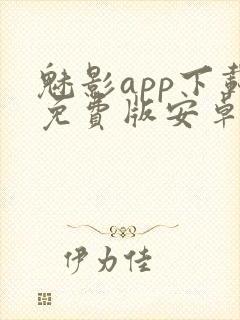 魅影app下载
免费版安卓
伊力佳